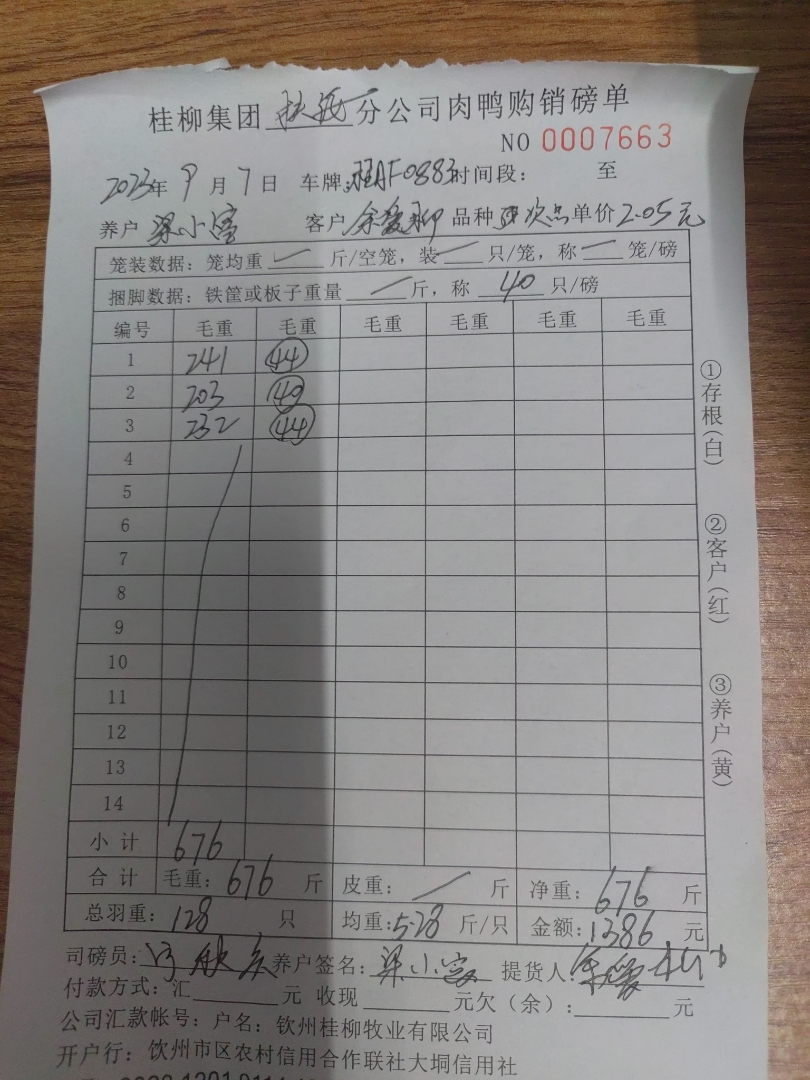 桂柳集团 分公司肉鸭购销磅单
NO 0007663
2023年 9月 7日 车牌: F0883时间段: 至
养户 梁小 客户 余 柳 品种 次品 单价 2.05元
笼装数据: 笼均重 — 斤/空笼, 装 — 只/笼, 称 — 笼/磅
捆脚数据: 铁筐或板子重量 — 斤, 称 40 只/磅
编号 毛重 毛重 毛重 毛重 毛重 毛重
1 241 44
2 203 40
3 232 44
4
5
6
7
8
9
10
11
12
13
14
小计 676
合计 毛重: 676 斤 皮重: / 斤 净重: 676 斤
总羽重: 128 只 均重: 5.28 斤/只 金额: 1386 元
司磅员: 养户签名: 梁小 提货人: 余
付款方式: 汇 元 收现 元欠(余): 元
公司汇款帐号: 户名: 钦州桂柳牧业有限公司
开户行: 钦州市区农村信用合作联社大垌信用社
①存根(白)
②客户(红)
③养户(黄)